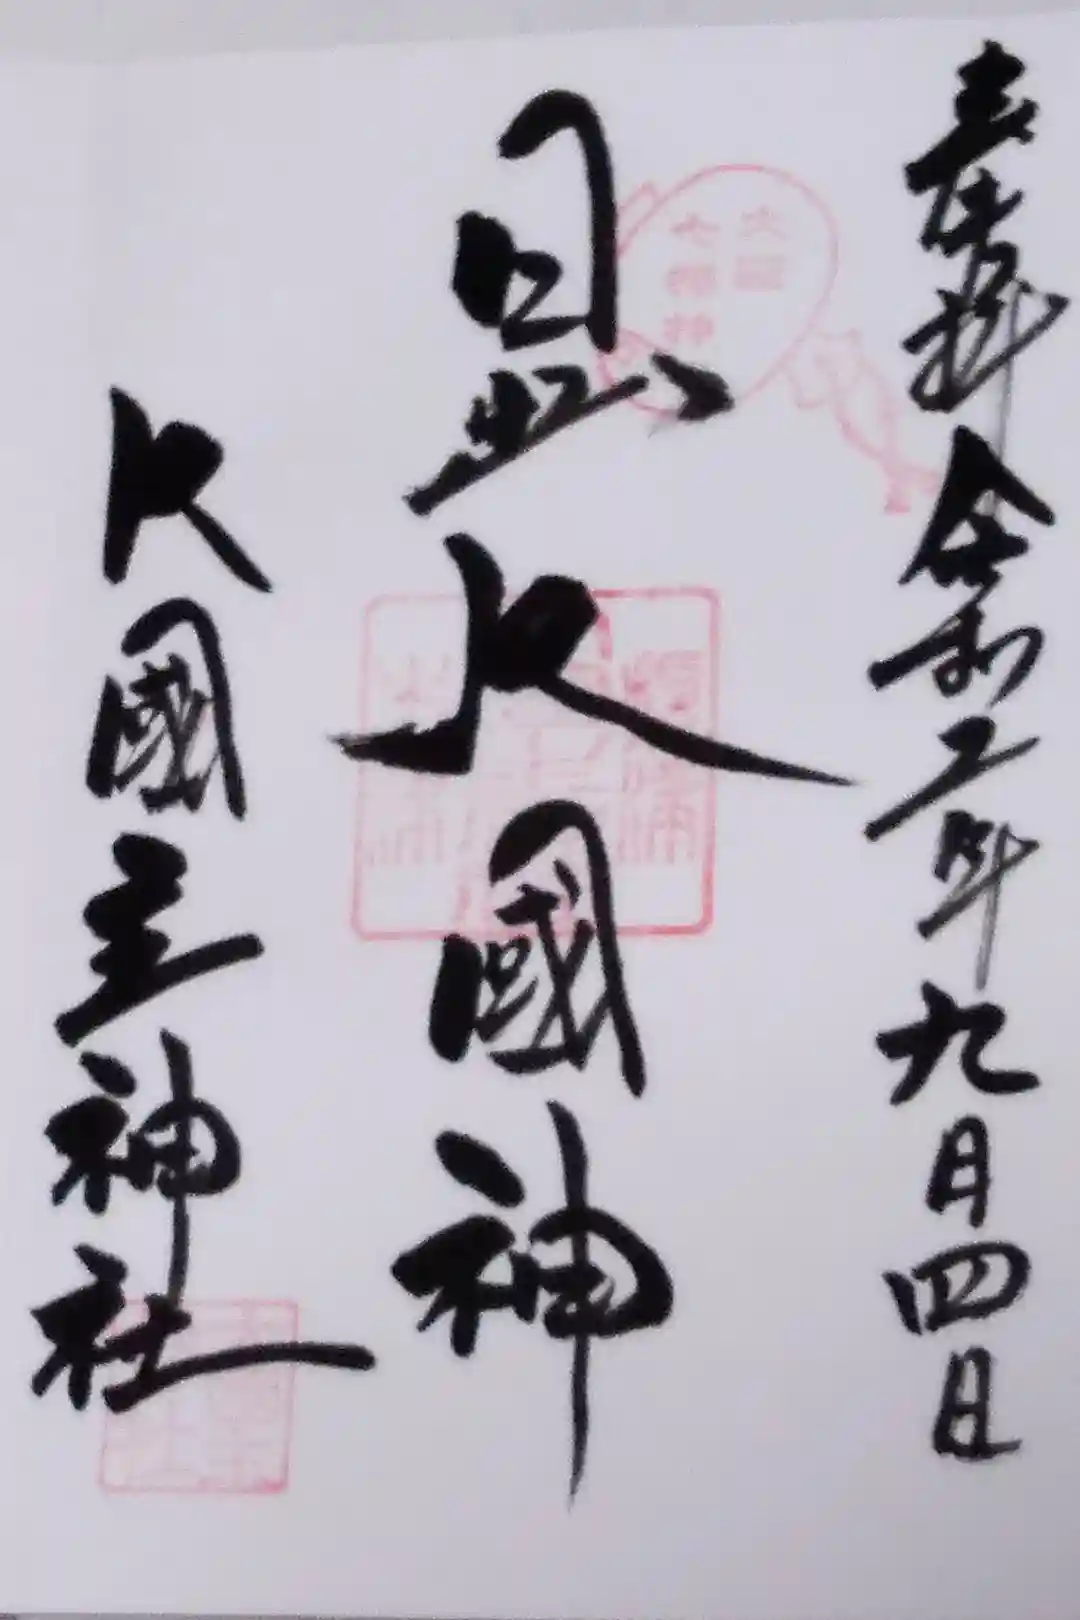 奉拝 令和二年九月四日
大阪
七福神
日出大國神
大國主神社